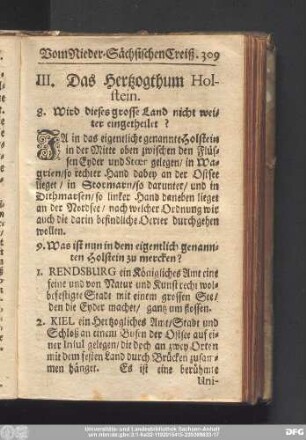 Vom Nieder-Sächsischen Creiß. 309
III. Das Hertzogthum Hol-
stein.
8. Wird dieses grosse Land nicht wei-
ter eingetheilet?
JA in das eigentliche genannte Holstein
in der Mitte oben zwischen den Flüs-
sen Eyder und Stoer gelegen/ in Wa-
grien/ so rechter Hand dabey an der Ostsee
lieget/ in Stormarn/ so darunter/ und in
Dithmarsen/ so lincker Hand daneben lieget
an der Nordsee/ nach welcher Ordnung wir
auch die darin befindliche Oerter durchgehen
wollen.
9. Was ist nun in dem eigentlich genann-
ten Holstein zu mercken?
1. RENDSBURG ein Königliches Amt eine
feine und von Natur und Kunst recht wol-
befestigte Stadt mit einem grossen See/
den die Eyder machet/ gantz um flossen.
2. KIEL ein Hertzogliches Amt/ Stadt und
Schloß an einem Busen der Ostsee auf ei-
ner Insul gelegen/ die doch an zwey Orten
mit dem festen Land durch Brücken zusam-
men hänget. Es ist eine berühmte
Uni-
Universitäts- und Landesbibliothek Sachsen-Anhalt
DFG